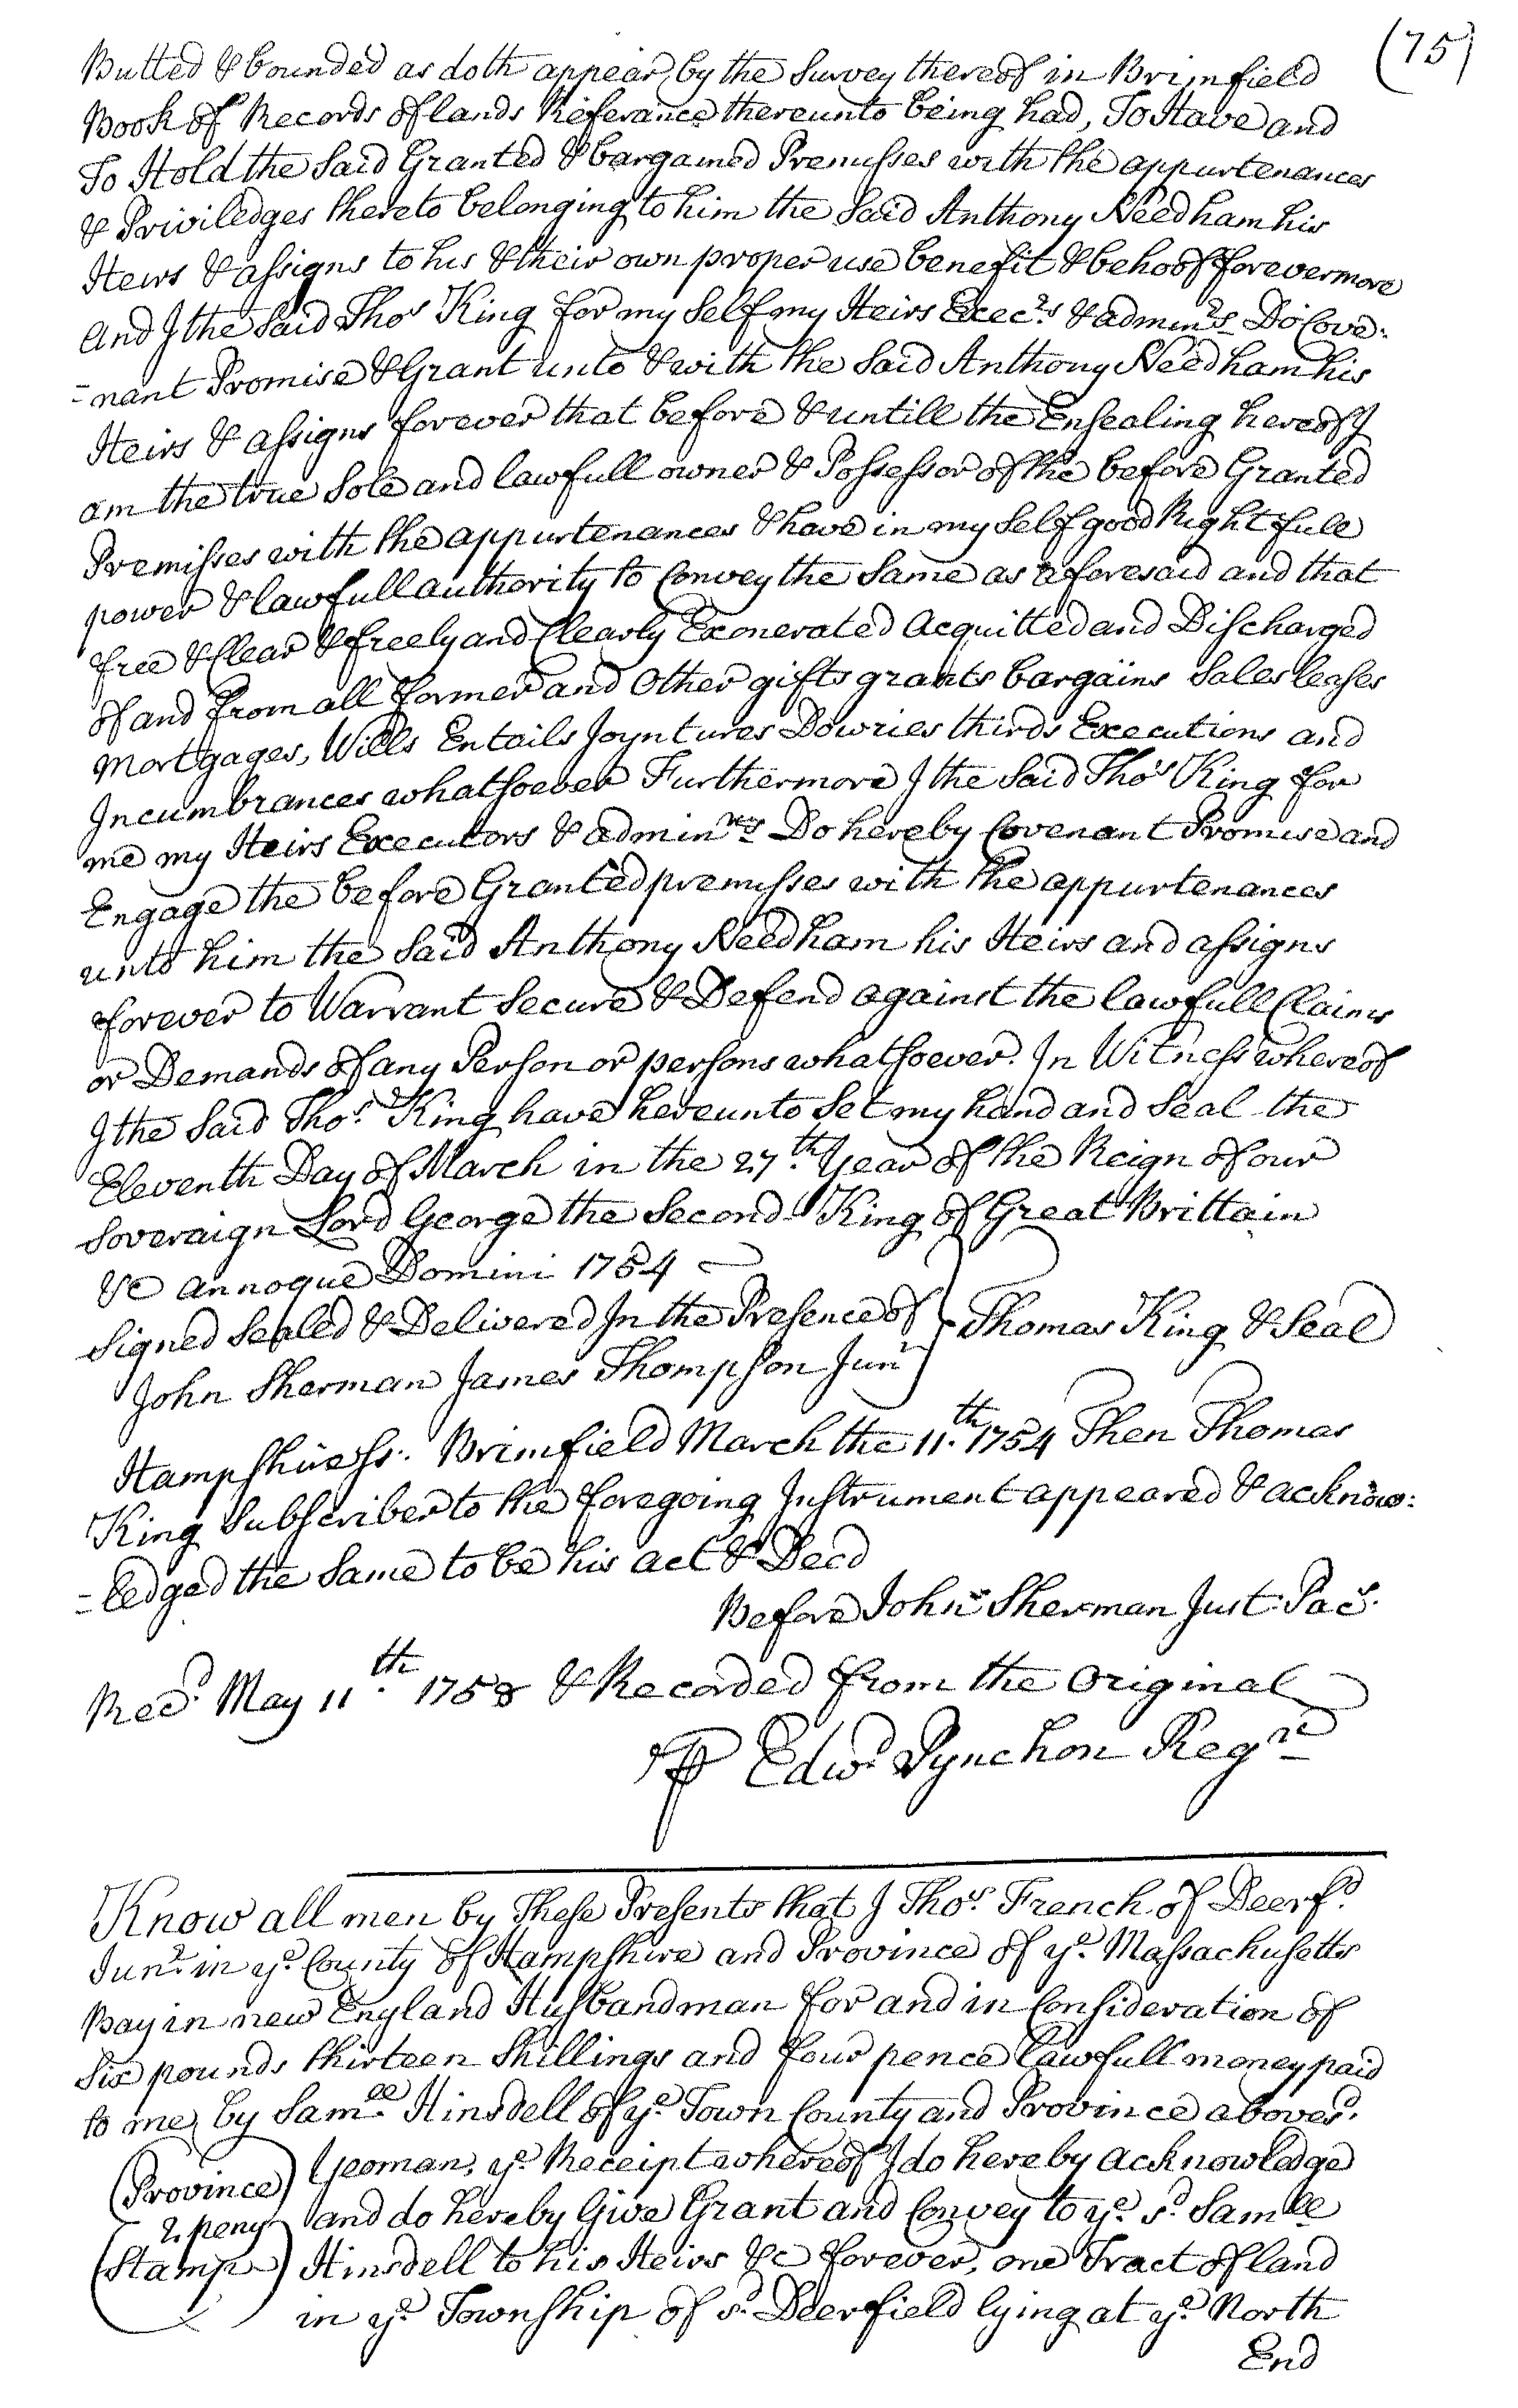 (75)
Butted & bounded as doth appear by the Survey thereof in Brimfield
Book of Records of lands Referance thereunto being had, To Have and
To Hold the Said Granted & bargained Premisses with the appurtenances
& Priviledges thereto belonging to him the Said Anthony Needham his
Heirs & assigns to his & their own proper use benefit & behoof forevermore
And I the Said Thos King for my Self my Heirs Execrs & adminrs Do Cove:
=nant Promise & Grant unto & with the Said Anthony Needham his
Heirs & assigns forever that before & untill the Ensealing hereof I
am the true Sole and lawfull owner & Possessor of the before Granted
Premisses with the appurtenances & have in my Self good Right full
power & lawfull authority to Convey the Same as aforesaid and that
free & Clear & freely and Clearly Exonerated Acquitted and Discharged
of and from all former and Other gifts grants bargains Sales leases
Mortgages, Wills Entails Joyntures Dowries thirds Executions and
Incumbrances whatsoever Furthermore I the Said Thos King for
me my Heirs Executors & adminrs Do hereby Covenant Promise and
Engage the before Granted premisses with the appurtenances
unto him the Said Anthony Needham his Heirs and assigns
forever to Warrant Secure & Defend against the lawfull Claims
or Demands of any Person or persons whatsoever. In Witness whereof
I the Said Thos. King have hereunto Set my hand and Seal the
Eleventh Day of March in the 27th. Year of the Reign of our
Soveraign Lord George the Second King of Great Brittain
&c annoque Domini 1754
Signed Sealed & Delivered In the Presence of } Thomas King & Seal
John Sherman James Thompson Junr
Hampshire Ss. Brimfield March the 11th. 1754 Then Thomas
King Subscriber to the foregoing Instrument appeared & acknow:
=ledged the Same to be his act & Deed
Before John Sherman Just. Pacs.
Recd. May 11th. 1758 & Recorded from the Original
⅌ Edwd Pynchon Regr
Know all men by These Presents that I Thos. French of Deerfd.
Junr. in ye. County of Hampshire and Province of ye. Massachusetts
Bay in new England Husbandman for and in Consideration of
Six pounds thirteen Shillings and four pence lawfull money paid
to me by Samll. Hinsdell of ye. Town County and Province abovesd.
(Province) Yeoman, ye. Receipt whereof I do hereby acknowledge
2 peny and do hereby Give Grant and Convey to ye. sd. Samll
(Stamp) Hinsdell to his Heirs &c forever, one Tract of land
in ye. Township of sd. Deerfield lying at ye. North
End